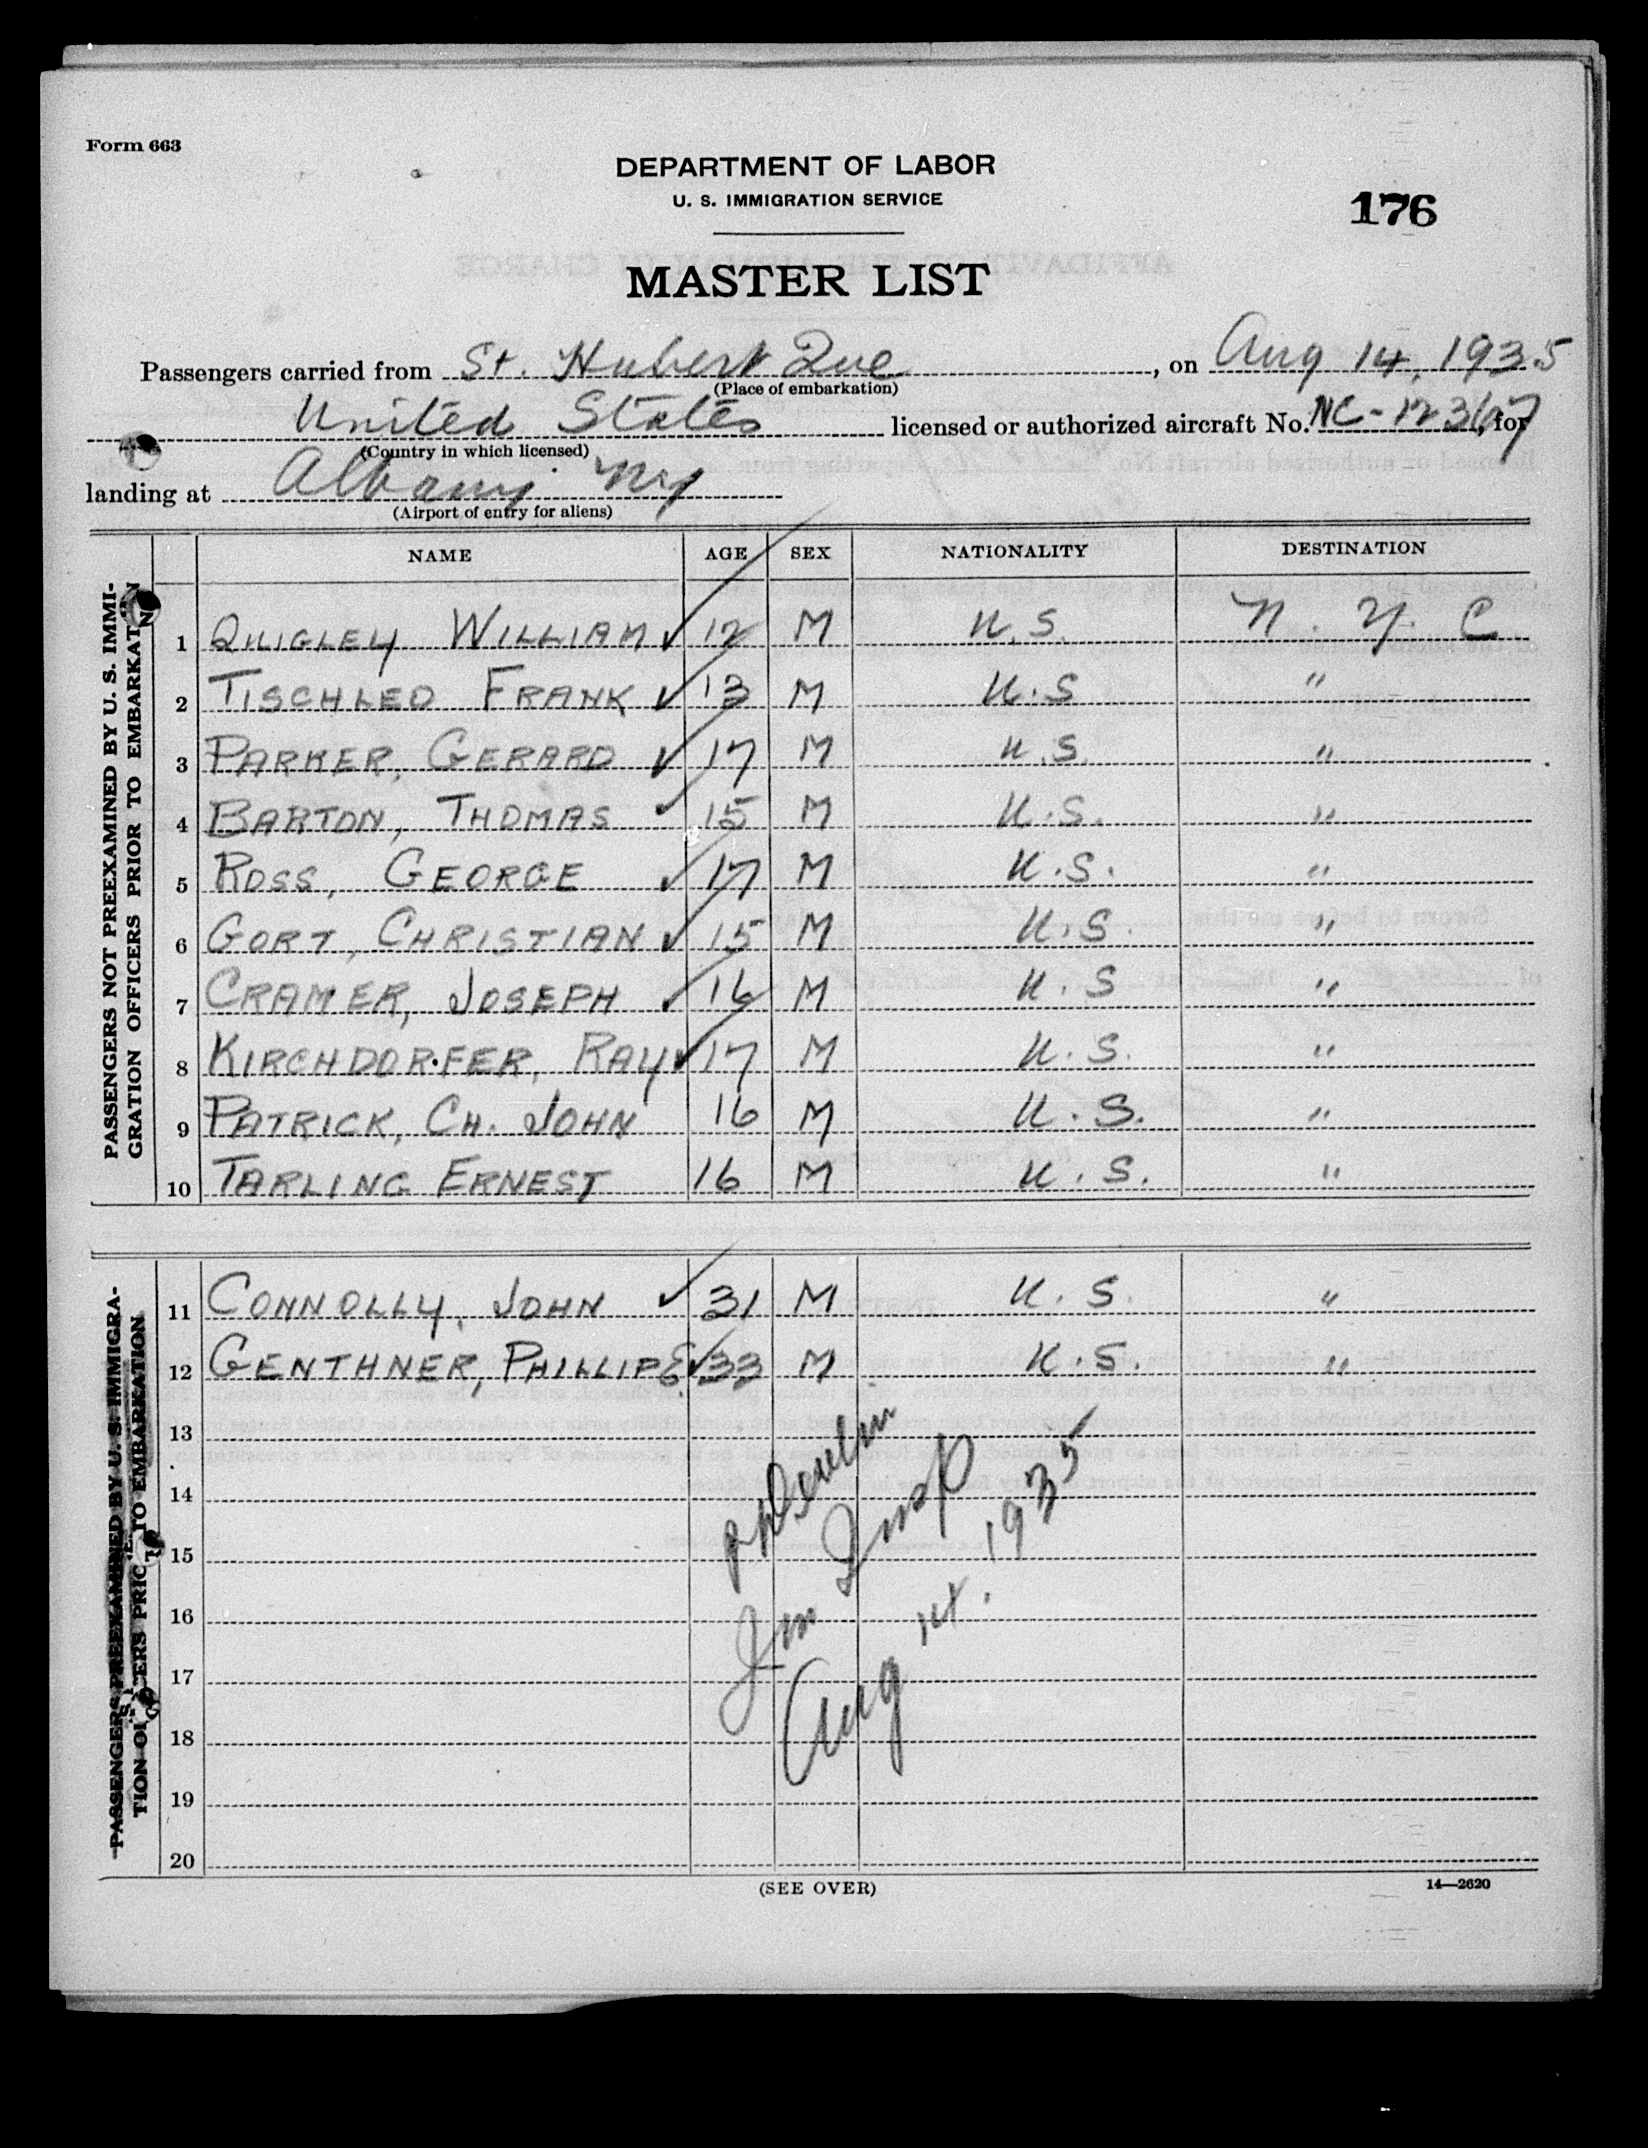 Form 663
DEPARTMENT OF LABOR
U. S. IMMIGRATION SERVICE
176
MASTER LIST
Passengers carried from St. Hubert Que, on Aug 14, 1935
(Place of embarkation)
United States licensed or authorized aircraft No. NC-12367, for
(Country in which licensed)
landing at Albany NY
(Airport of entry for aliens)
NAME AGE SEX NATIONALITY DESTINATION
PASSENGERS NOT PREEXAMINED BY U. S. IMMI-
GRATION OFFICERS PRIOR TO EMBARKATION
1 QUIGLEY WILLIAM ✓ 12 M U.S. N.Y.C
2 TISCHLED FRANK ✓ 13 M U.S "
3 PARKER, GERARD ✓ 17 M U.S. "
4 BARTON, THOMAS ✓ 15 M U.S. "
5 ROSS, GEORGE ✓ 17 M U.S. "
6 GORT, CHRISTIAN ✓ 15 M U.S. "
7 CRAMER, JOSEPH ✓ 16 M U.S "
8 KIRCHDORFER, RAY ✓ 17 M U.S. "
9 PATRICK, CH. JOHN 16 M U.S. "
10 TARLING ERNEST 16 M U.S. "
PASSENGERS PREEXAMINED BY U. S. IMMIGRA-
TION OFFICERS PRIOR TO EMBARKATION
11 CONNOLLY, JOHN ✓ 31 M U.S. "
12 GENTHNER, PHILLIP E. ✓ 33 M U.S. "
13
14
15
16
17
18
19
20
Devlin
Imm Insp
Aug 14. 1935
(SEE OVER)
14—2620